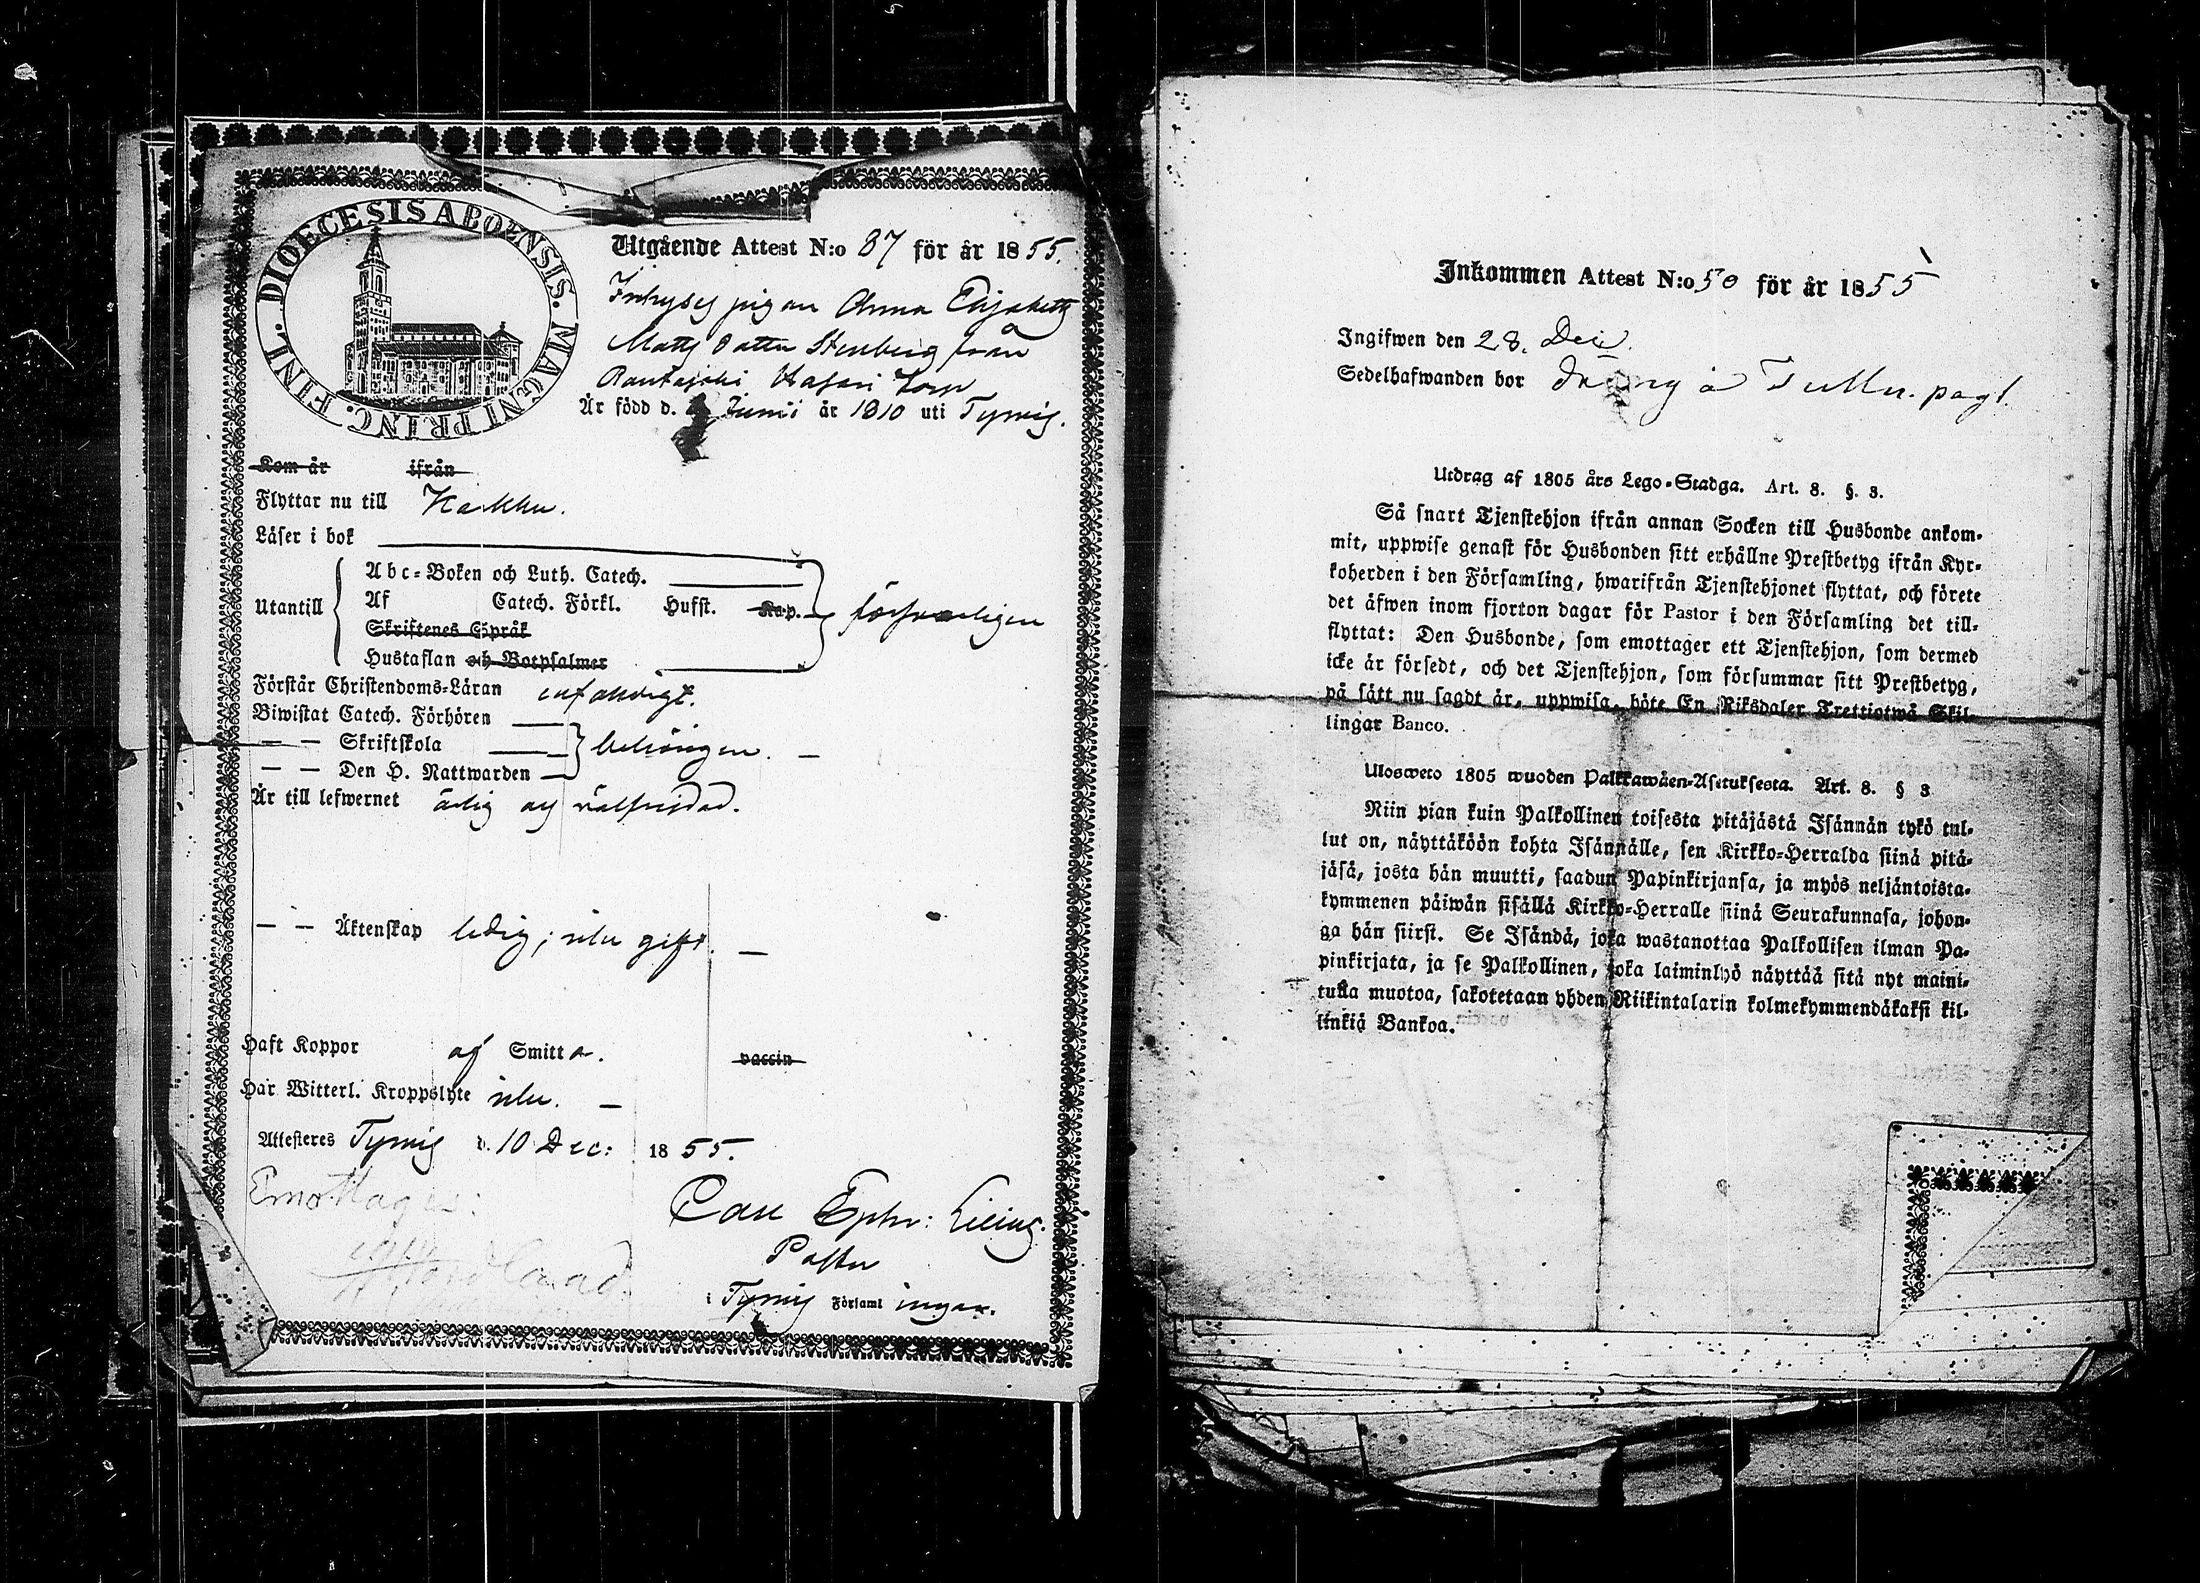 FINL. DIOECESIS ABOËNSIS. MAGNI PRINC.
Utgående Attest N:o 87 för år 1855.
Inhyses pigan Anna Elisabeth
Matts dotter Stenberg från
Rantasihi Torp
År född d. Junii år 1810 uti Tyrvis.
Kom år ifrån
Flyttar nu till Kakku.
Läser i bok
Utantill
Abc-Boken och Luth. Catech.
Af Catech. Förkl. Husft. Kap. försvarligen
Skriftenes Språk
Hustaflan och Botpsalmer
Förstår Christendoms-Läran enfaldigt.
Biwistat Catech. Förhören
— — Skriftskola behörigen.
— — Den H. Nattwarden
Är till lefwernet ärlig och välfrejdad.
— — Äktenskap ledig; icke gift.
Haft Koppor af Smitta. vaccin
Har Witterl. Kroppslyte icke.
Attesteras Tyrvis d. 10 Dec: 1855.
Emottages:
Carl Ephr: Lilius.
Pastor
i Tyrvis Församlingar.
Inkommen Attest N:o 50 för år 1855
Ingifwen den 28. Dec.
Sedelhafwanden bor
Utdrag af 1805 års Lego-Stadga. Art. 8. §. 3.
Så snart Tjenstehjon ifrån annan Socken till Husbonde ankom-
mit, uppwise genast för Husbonden sitt erhållne Prestbetyg ifrån Kyr-
koherden i den Församling, hwarifrån Tjenstehjonet flyttat, och förete
det äfwen inom fjorton dagar för Pastor i den Församling det till-
flyttat: Den Husbonde, som emottager ett Tjenstehjon, som dermed
icke är försedt, och det Tjenstehjon, som försummar sitt Prestbetyg,
på sätt nu sagdt är, uppwisa, böte En Riksdaler Trettiotwå Skil-
lingar Banco.
Ulosweto 1805 wuoden Palkkawäen-Asetuksesta. Art. 8. § 3
Niin pian kuin Palkollinen toisesta pitäjästä Isännän tykö tul-
lut on, näyttäköön kohta Isännälle, sen Kirkko-Herralda siinä pitä-
jäsä, josta hän muutti, saadun Papinkirjansa, ja myös neljäntoista-
kymmenen päiwän sisällä Kirkko-Herralle siinä Seurakunnasa, johon-
ga hän siirst. Se Isändä, joka wastanottaa Palkollisen ilman Pa-
pinkirjata, ja se Palkollinen, joka laiminlyö näyttää sitä nyt maini-
tulla muotoa, sakotetaan yhden Riikintalarin kolmekymmendäkaksi kil-
linkiä Bankoa.